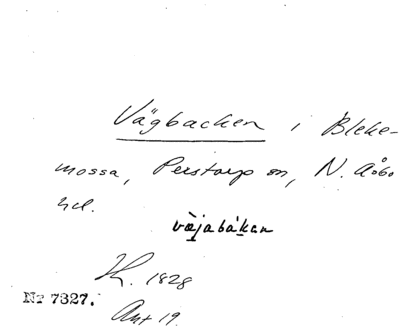 Vägbacken i Bleke-
mossa, Perstorp sn, N. Åsbo
hd.
väjabákan
K. 1828
Nr 7327.
Ant 19.